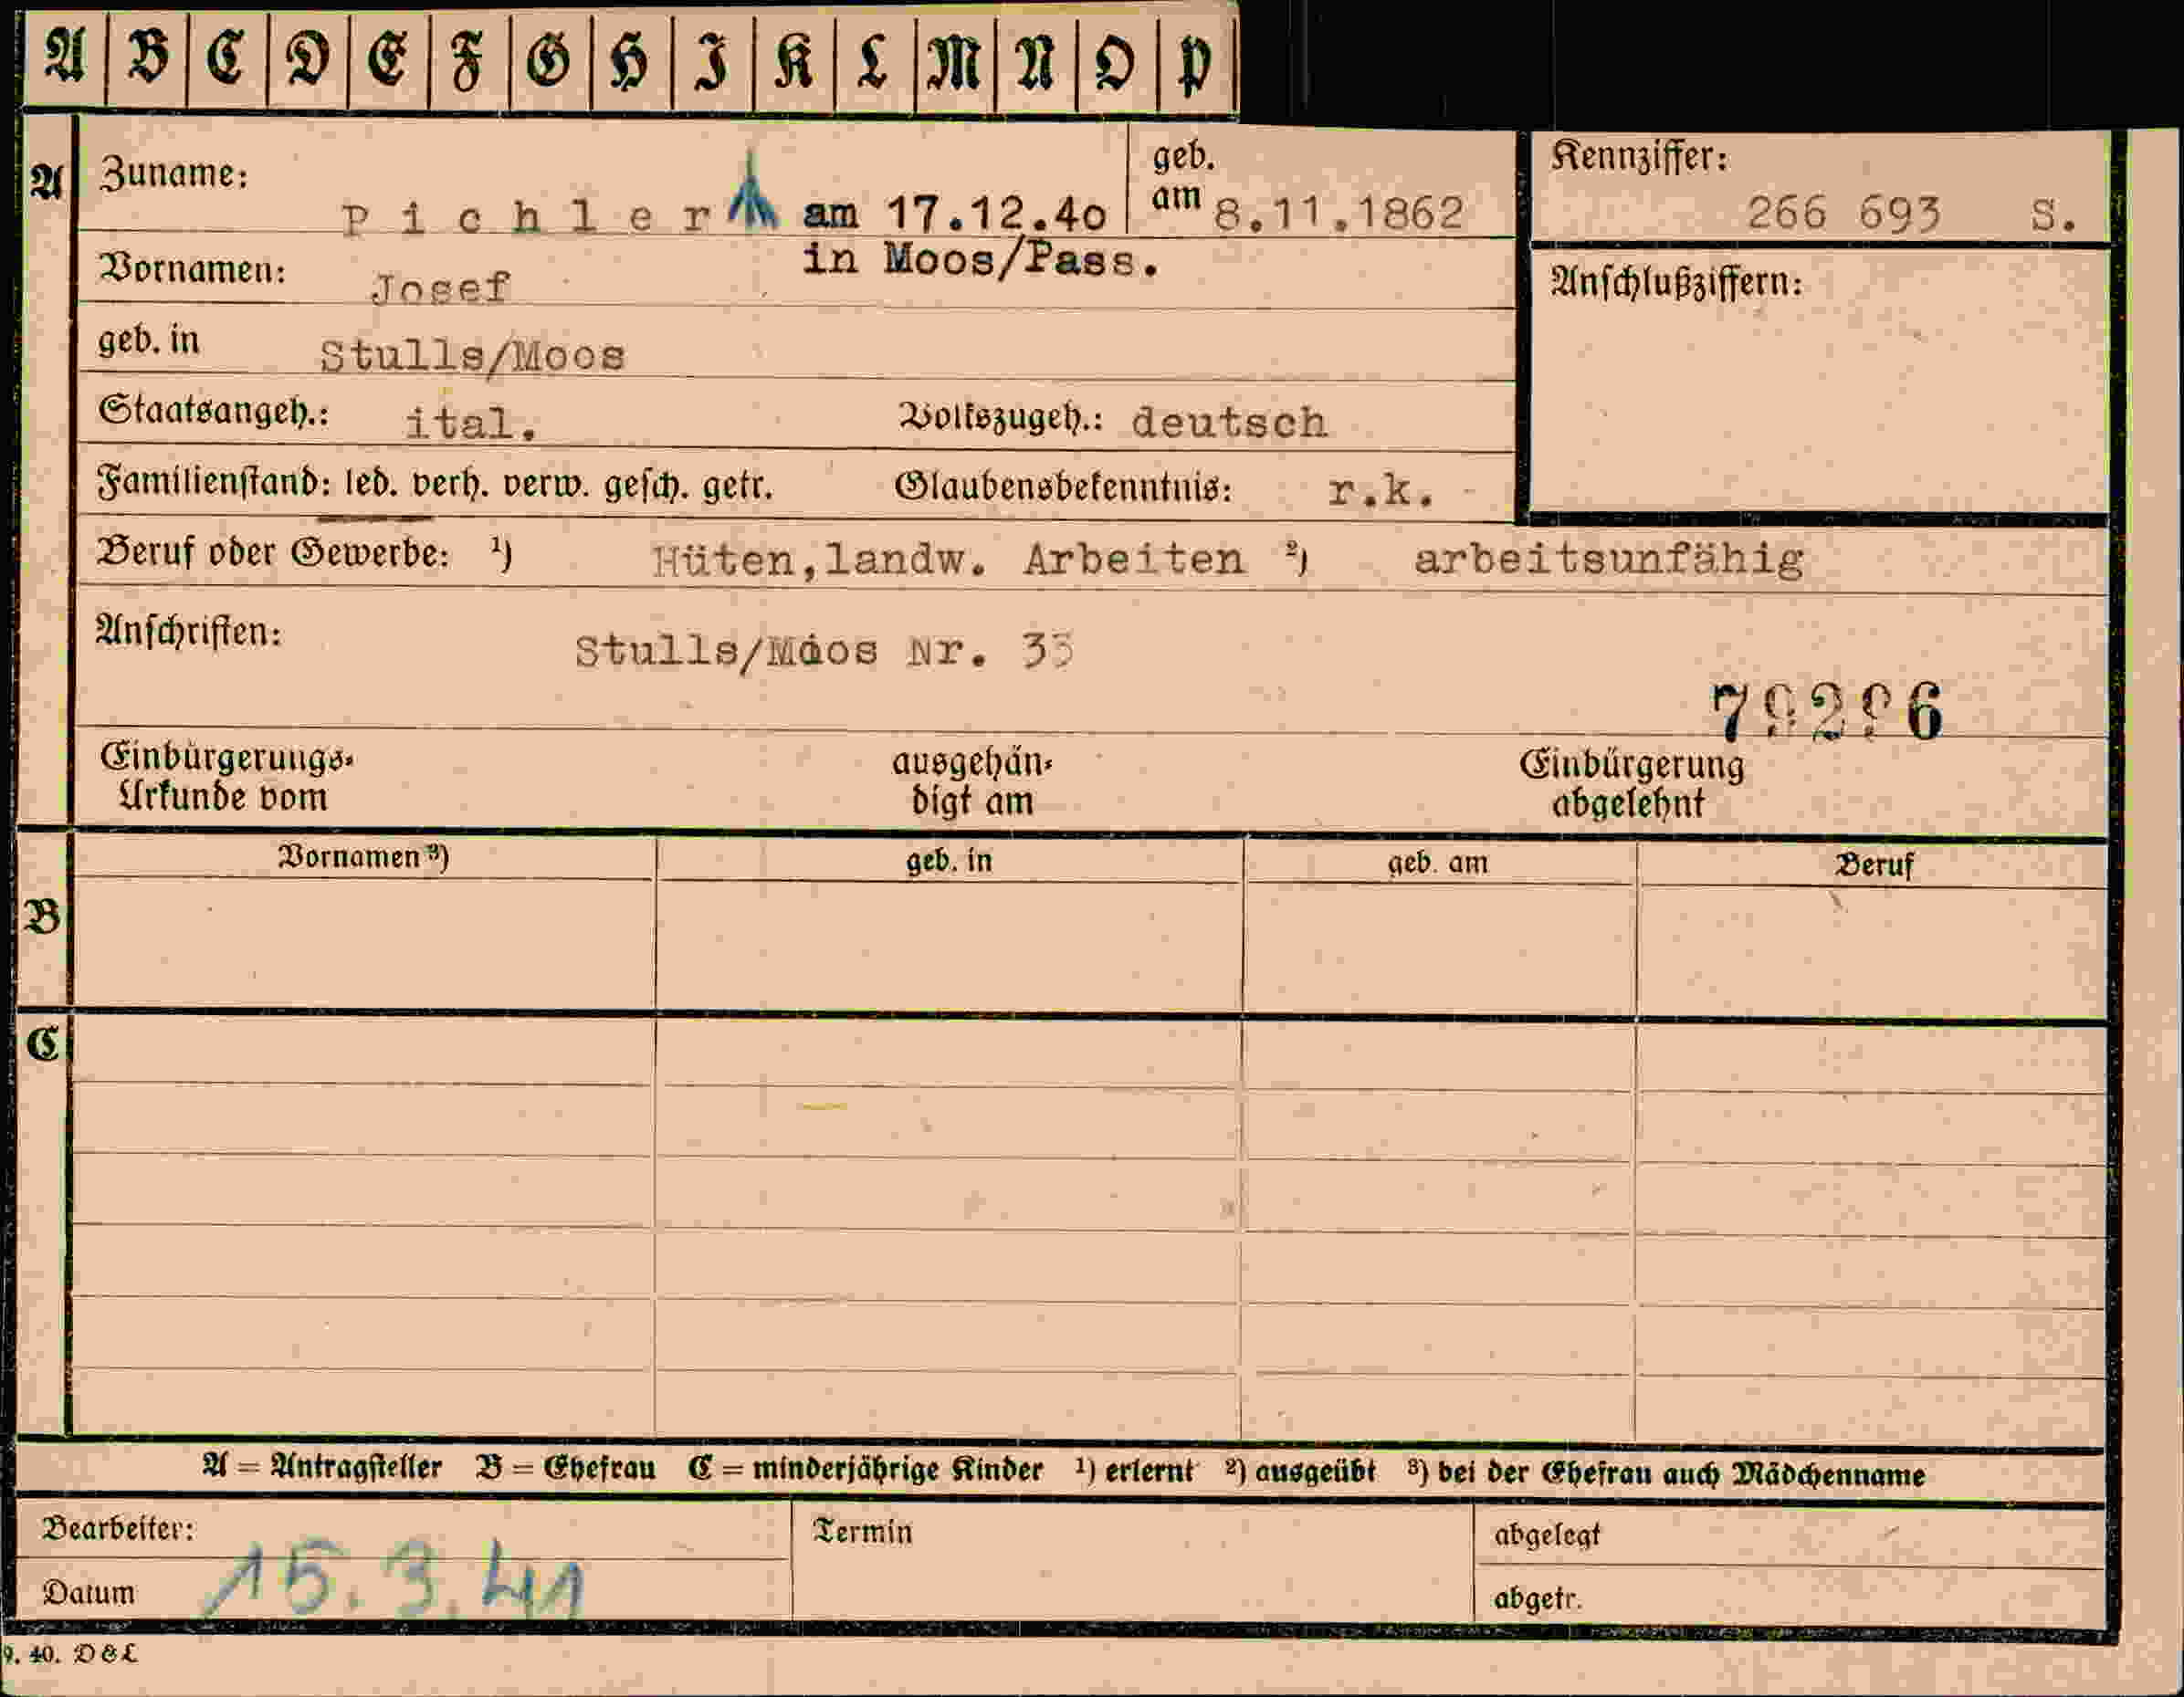 A B C D E F G H I K L M N O P
A Zuname: Pichler am 17.12.40 geb. am 8.11.1862 Kennziffer: 266 693 S.
Vornamen: Josef in Moos/Pass. Anschlußziffern:
geb. in Stulls/Moos
Staatsangeh.: ital. Volkszugeh.: deutsch
Familienstand: led. verh. verw. gesch. getr. Glaubensbekenntnis: r.k.
Beruf oder Gewerbe: ¹) Hüten,landw. Arbeiten ²) arbeitsunfähig
Anschriften: Stulls/Moos Nr.
Einbürgerungs- ausgehän- Einbürgerung
Urkunde vom digt am abgelehnt
Vornamen ³) geb. in geb. am Beruf
B
C
A = Antragsteller B = Ehefrau C = minderjährige Kinder ¹) erlernt ²) ausgeübt ³) bei der Ehefrau auch Mädchenname
Bearbeiter: Termin abgelegt
Datum 15.3.41 abgetr.
9. 40. D&L